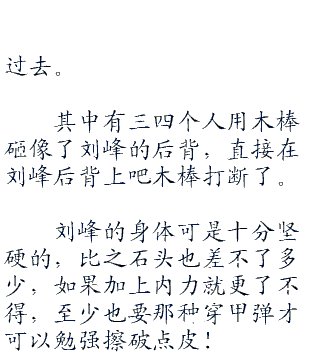 过去。
其中有三四个人用木棒
砸像了刘峰的后背，直接在
刘峰后背上吧木棒打断了。
刘峰的身体可是十分坚
硬的，比之石头也差不了多
少，如果加上内力就更了不
得，至少也要那种穿甲弹才
可以勉强擦破点皮！